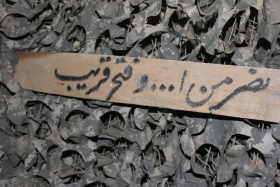 نصر من ا... و فتح قریب